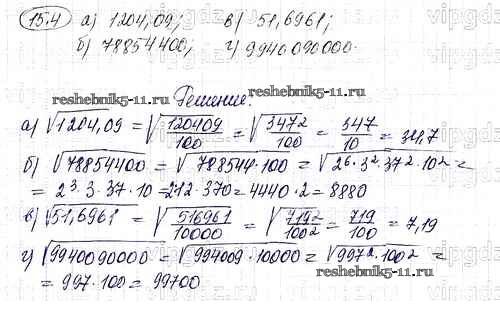 15.4 а) 1204,09; в) 51,6961;
б) 78854400; г) 9940090000.
reshebnik5-11.ru
Решение.
reshebnik5-11.ru
а) √1204,09 = √120409/100 = √347²/100 = 347/10 = 34,7
б) √78854400 = √788544·100 = √2⁶·3²·37²·10² =
= 2³·3·37·10 = 212·370 = 4440·2 = 8880
в) √51,6961 = √516961/10000 = √719²/100² = 719/100 = 7,19
г) √9940090000 = √994009·10000 = √997²·100² =
reshebnik5-11.ru
= 997·100 = 99700
vipgdz
vipgdz